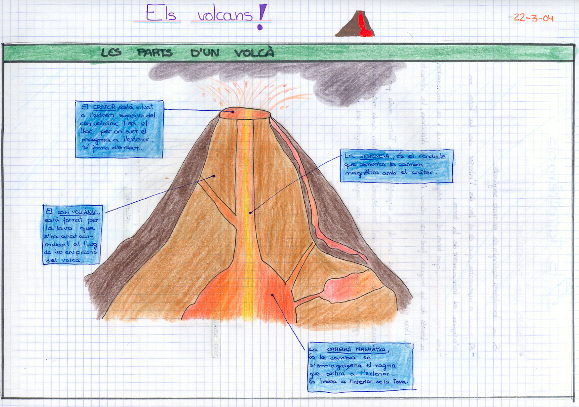 Els volcans!
22-3-04
LES PARTS D'UN VOLCÀ
El CRÀTER està situat
a l'extrem superior del
con volcànic i és el
lloc per on surt el
magma a l'exterior
La xemeneia, és el conducte
que comunica la cambra
magmàtica amb el cràter.
El con volcànic,
està format per
la lava que
s'ha anat acu-
mulant al llarg
de les erupcions
del volcà.
La CAMBRA MAGMÀTICA,
és la cambra on
s'emmagatzema el magma
que sortirà a l'exterior.
Es troba a l'interior de la Terra.